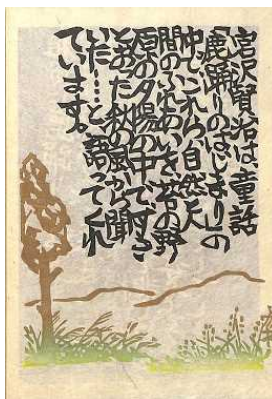 宮沢賢治は、童話
「鹿踊りのはじまり」の
中でこれら自然と人
間のふれあいを苔の野
原の夕陽の中ですき
とおった秋の風から聞
いた…と語ってくれ
ています。